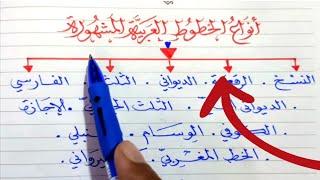 أنواع الخطوط العربية المشهورة
النسخ . الرقعة . الديواني . الثلث . الفارسي
الديواني . الثلث . الإجازة
الكوفي . الوسام . سنبلي
الخط المغربي .